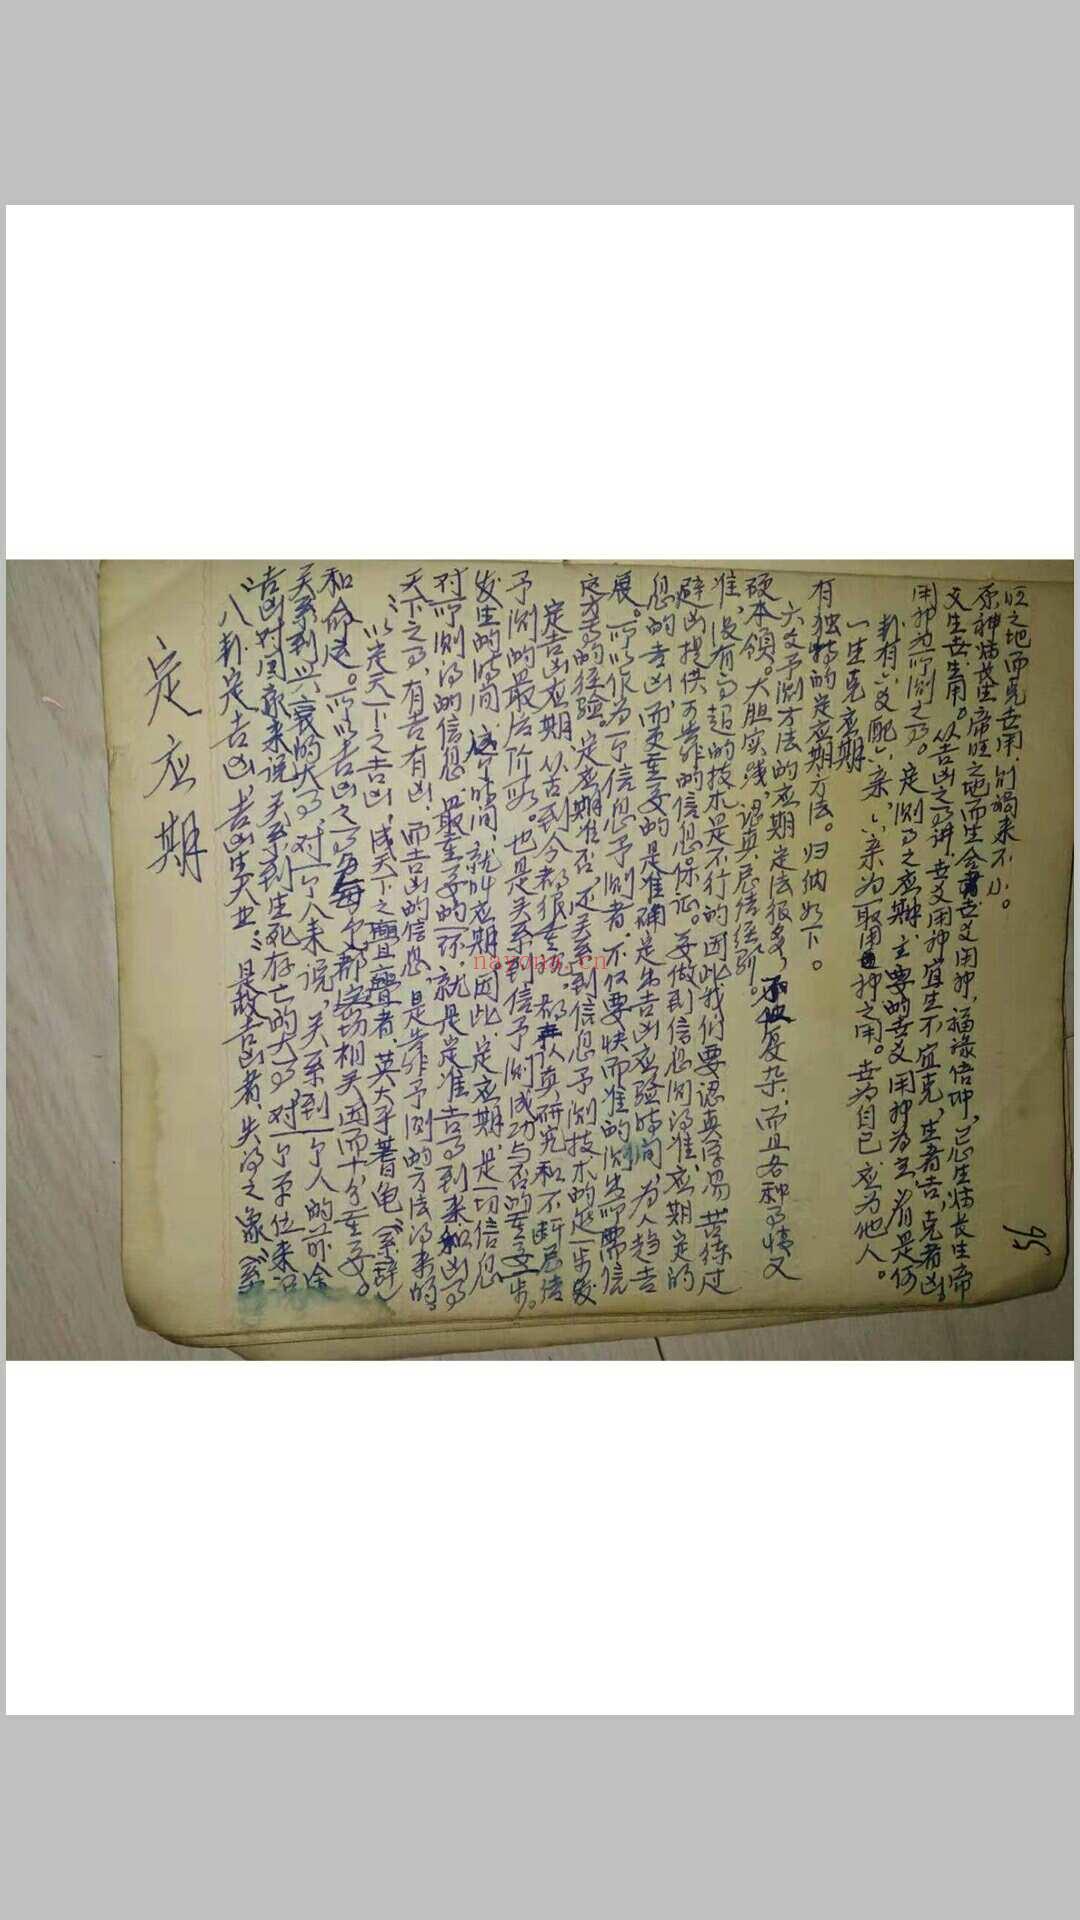 定应期
“八卦定吉凶,吉凶生大业。”是故吉凶者,失得之象《系
吉凶对国家来说,关系到生死存亡的大事,对一个单位来说
关系到兴衰的大事,对一个人来说,关系到一个人的前途
和命运。所以吉凶之事与每个都密切相关因而十分重要。
“以定天下之吉凶,成天下之亹亹者,莫大乎蓍龟《系辞》
天下之事,有吉有凶,而吉凶的信息,是靠予测的方法得来的
对所测得的信息,最重要的一环,就是定准吉事到来和凶事
发生的时间,这个时间,就叫应期,因此,定应期,是一切信息
予测的最后阶段。也是关系到信予测成功与否的重要一步。
定吉凶应期,从古到今都很重视,都认真研究和不断总结
这方面的经验。定应期准否,还关系到信息予测技术的进一步发
展。所以作为一个信息予测者,不仅要快而准的测出所需信
息的吉凶,而更重要的是准确定出吉凶应验时间,为人趋吉
避凶提供可靠的信息保证。要做到信息测得准,应期定的
准,没有高超的技术是不行的因此我们要认真学易,苦练过
硬本领。大胆实践,认真总结经验。
六爻予测方法的应期定法很多,复杂,而且各种事情又
有独特的定应期方法。归纳如下。
一生克应期
卦有六爻配六亲,六亲为取用神之用。世为自己,应为他人。
用神为所测之事。定测事之应期,主要的世爻用神为主,看是何
爻生世生用。以吉凶之事讲,世爻用神,宜生不宜克,生者吉,克者凶
原神临长生帝旺之地而生合世爻用神,福禄倍加,忌生临长生帝
旺之地而克世用,则祸来不小。
56
nayona.cn